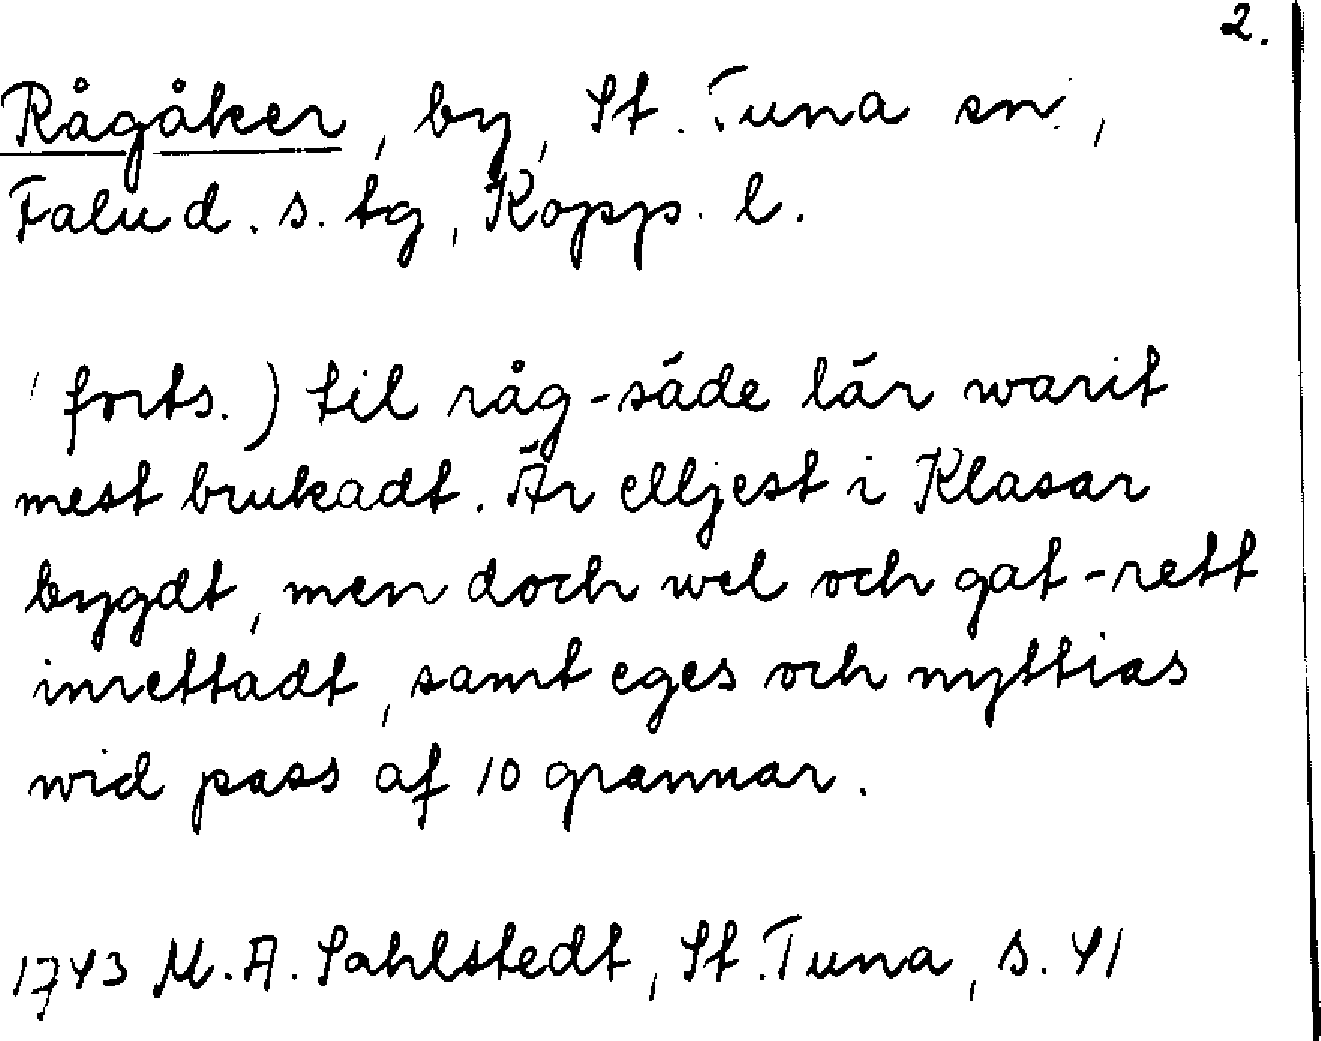 2.
Rågåker, by, St. Tuna sn.,
Falu d. s. tg, Kopp. l.
forts.) til råg-säde lär warit
mest brukadt. Är elljest i Klasar
bygdt, men doch wel och gat-rett
inrettadt, samt eges och nyttias
wid pass af 10 grannar.
1743 M. A. Sahlstedt, St. Tuna, s. 41